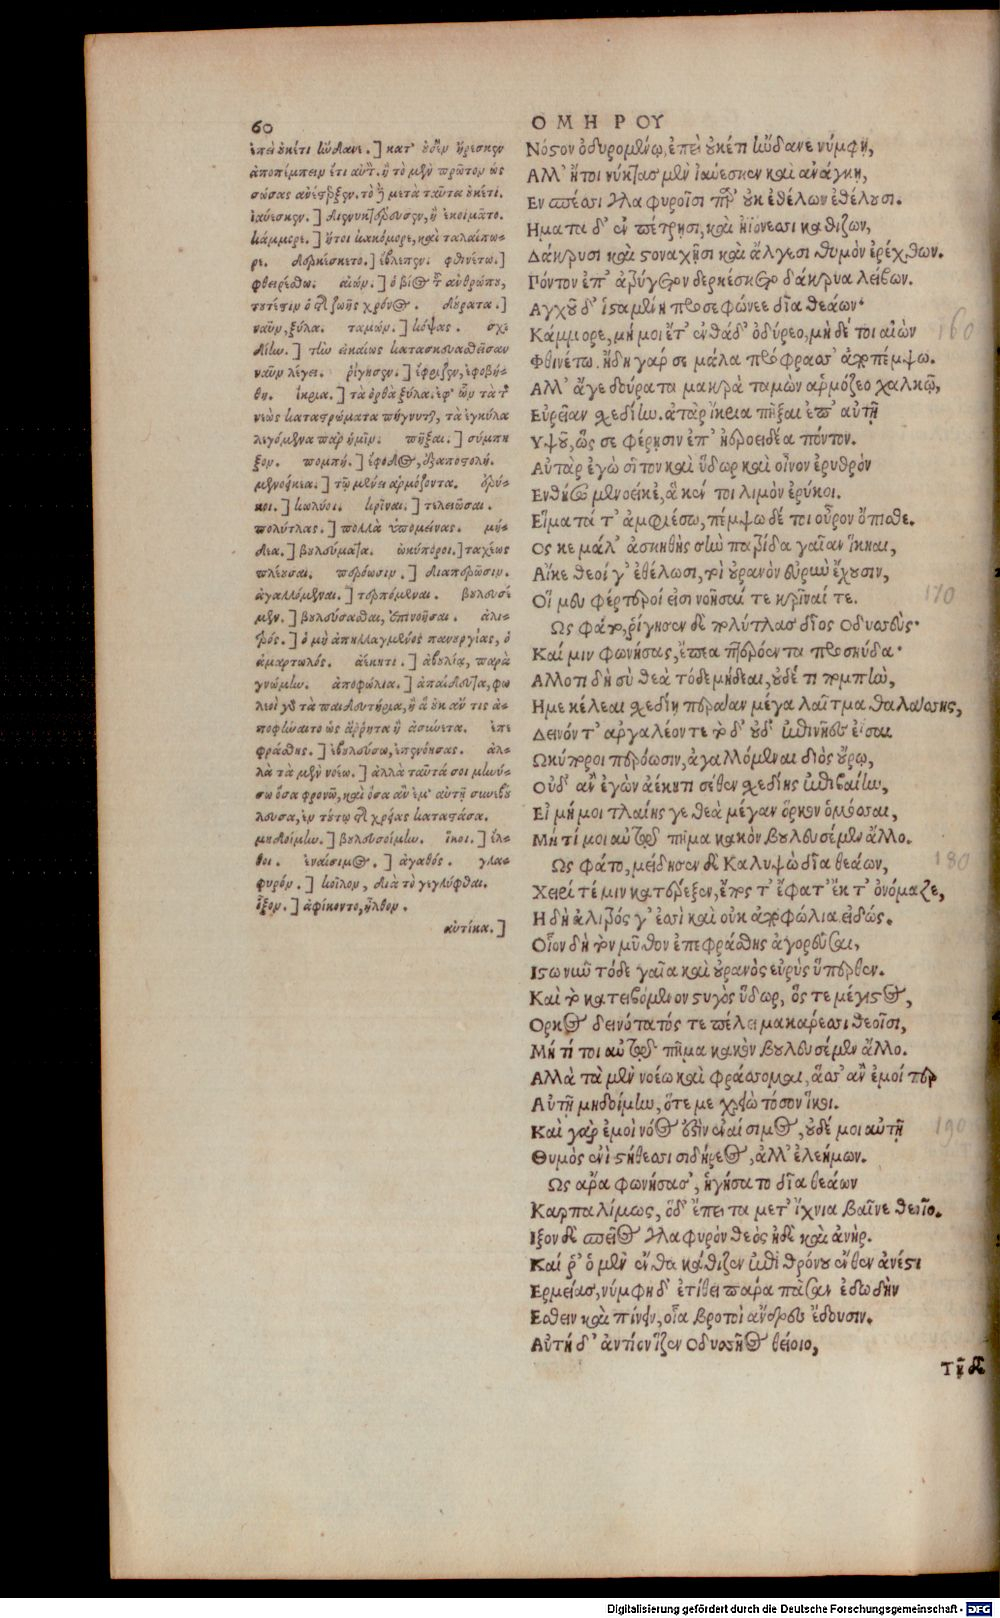 60
ΟΜΗΡΟΥ
ἐπεὶ οὐκέτι ἥνδανε.] κατ' οὐδὲν ἤρεσκεν
ἀποπέμπειν ἔτι αὐτ. ἢ τὸ μὲν πρῶτον ὡς
σώσας ἀνέτρεξεν. τὸ δὲ μετὰ ταῦτα οὐκέτι.
ἰαύεσκεν.] διενυκτέρευσεν, ἢ ἐκοιμᾶτο.
κάμμορε.] ἤτοι κακόμορε, καὶ ταλαίπω-
ρε. δερκέσκετο.] ἔβλεπεν. φθινέτω.]
φθειρέσθω. αἰών.] ὁ βίος τοῦ ἀνθρώπου,
τουτέστιν ὁ τῆς ζωῆς χρόνος. δούρατα.]
ναῦν, ξύλα. ταμών.] κόψας. σχε
δίην.] τὴν εἰκαίως κατασκευασθεῖσαν
ναῦν λέγει. ῥίγησεν.] ἔφριξεν, ἐφοβή-
θη. ἴκρια.] τὰ ὀρθὰ ξύλα. ἐφ' ὧν τὰ τῆς
νεὼς καταστρώματα πήγνυνται, τὰ ἐγκύλα
λεγόμενα παρ' ἡμῖν. πῆξαι.] σύμπη
ξον. πομπή.] ἔφοδος, ἐξαποστολή.
μενοεικέα.] τῷ μένει ἁρμόζοντα. ἐρύ-
κοι.] κωλύοι. κρῖναι.] τελειῶσαι.
πολύτλας.] πολλὰ ὑπομείνας. μή-
δεα.] βουλεύματα. ὠκύποροι.] ταχέως
πλέουσαι. περόωσιν.] διαπερῶσιν.
ἀγαλλόμεναι.] τερπόμεναι. βουλευσέ
μεν.] βουλεύσασθαι, ἐπινοῆσαι. ἀλι-
τρός.] ὁ μὴ ἀπηλλαγμένος πανουργίας, ὁ
ἁμαρτωλός. ἀέκητι.] ἀβουλίᾳ, παρὰ
γνώμην. ἀποφώλια.] ἀπαίδευτα, φω
λεοὶ γὰρ τὰ παιδευτήρια, ἢ ἃ οὐκ ἄν τις ἀ-
ποφήναιτο ὡς ἄρρητα ἢ ἀσύνετα. ἐπε
φράσθης.] ἐβουλεύσω, ἐπενόησας. ἀλ-
λὰ τὰ μὲν νοέω.] ἀλλὰ ταῦτά σοι μηνύ-
σω ὅσα φρονῶ, καὶ ὅσα ἂν ἐμ' αὐτῇ συνεβού
λευσα, ἐν τούτῳ τῆς χρείας καταστᾶσα.
μηδοίμην.] βουλευσοίμην. ἵκοι.] ἔλ-
θοι. ἐναίσιμος.] ἀγαθός. γλα-
φυρόν.] κοῖλον, διὰ τὸ γεγλύφθαι.
ἷξον.] ἀφίκοντο, ἦλθον.
αὐτίκα.]
Νόστον ὀδυρομένῳ, ἐπεὶ οὐκέτι ἥνδανε νύμφη,
Ἀλλ' ἤτοι νύκτας μὲν ἰαύεσκεν καὶ ἀνάγκῃ,
Εν σπέσσι γλαφυροῖσι παρ' οὐκ ἐθέλων ἐθελούσῃ.
Ηματα δ' ἐν πέτρῃσι, καὶ ἠϊόνεσσι καθίζων,
Δάκρυσι καὶ στοναχῇσι καὶ ἄλγεσι θυμὸν ἐρέχθων.
Πόντον ἐπ' ἀτρύγετον δερκέσκετο δάκρυα λείβων.
Αγχοῦ δ' ἱσταμένη προσεφώνεε δῖα θεάων·
Κάμμορε, μή μοι ἔτ' ἐνθάδ' ὀδύρεο, μηδέ τοι αἰὼν
Φθινέτω. ἤδη γάρ σε μάλα πρόφρασσ' ἀποπέμψω.
Αλλ' ἄγε δούρατα μακρὰ ταμὼν ἁρμόζεο χαλκῷ,
Εὐρεῖαν σχεδίην. ἀτὰρ ἴκρια πῆξαι ἐπ' αὐτῇ
Υψοῦ, ὥς σε φέρῃσιν ἐπ' ἠεροειδέα πόντον.
Αὐτὰρ ἐγὼ σῖτον καὶ ὕδωρ καὶ οἶνον ἐρυθρὸν
Ενθήσω μενοεικέ, ἅ κέν τοι λιμὸν ἐρύκοι.
Εἵματά τ' ἀμφιέσω, πέμψω δέ τοι οὖρον ὄπισθε.
Ος κε μάλ' ἀσκηθὴς σὴν πατρίδα γαῖαν ἵκηαι,
Αἴκε θεοί γ' ἐθέλωσι, τοὶ οὐρανὸν εὐρὺν ἔχουσιν,
Οἵ μευ φέρτεροί εἰσι νοῆσαί τε κρῖναί τε.
Ως φάτο, ῥίγησεν δὲ πολύτλας δῖος Οδυσσεύς·
Καί μιν φωνήσας, ἔπεα πτερόεντα προσηύδα·
Αλλο τι δὴ σὺ θεὰ τόδε μήδεαι, οὐδέ τι πομπὴν,
Ημε κέλεαι σχεδίῃ περάαν μέγα λαῖτμα θαλάσσης,
Δεινόν τ' ἀργαλέον τε τὸ δ' οὐδ' ἐπὶ νῆες ἐῖσαι
Ωκύποροι περόωσιν, ἀγαλλόμεναι διὸς οὔρῳ,
Οὐδ' ἂν ἐγὼν ἀέκητι σέθεν σχεδίης ἐπιβαίην,
Εἰ μή μοι τλαίης γε θεὰ μέγαν ὅρκον ὀμόσσαι,
Μή τί μοι αὐτῷ πῆμα κακὸν βουλευσέμεν ἄλλο.
Ως φάτο, μείδησεν δὲ Καλυψὼ δῖα θεάων,
Χειρί τέ μιν κατέρεξεν, ἔπος τ' ἔφατ' ἔκ τ' ὀνόμαζε,
Η δὴ ἀλιτρός γ' ἐσσὶ καὶ οὐκ ἀποφώλια εἰδώς.
Οἷον δὴ τὸν μῦθον ἐπεφράσθης ἀγορεῦσαι,
Ιστω νῦν τόδε γαῖα καὶ οὐρανὸς εὐρὺς ὕπερθεν.
Καὶ τὸ κατειβόμενον στυγὸς ὕδωρ, ὅς τε μέγιστος,
Ορκος δεινότατός τε πέλει μακάρεσσι θεοῖσι,
Μή τί τοι αὐτῷ πῆμα κακὸν βουλευσέμεν ἄλλο.
Αλλὰ τὰ μὲν νοέω καὶ φράσσομαι, ἅσσ' ἂν ἐμοί περ
Αὐτῇ μηδοίμην, ὅτε με χρειὼ τόσον ἵκοι.
Καὶ γὰρ ἐμοὶ νόος ἐστὶν ἐναίσιμος, οὐδέ μοι αὐτῇ
Θυμὸς ἐνὶ στήθεσσι σιδήρεος, ἀλλ' ἐλεήμων.
Ως ἄρα φωνήσασ', ἡγήσατο δῖα θεάων
Καρπαλίμως, ὅδ' ἔπειτα μετ' ἴχνια βαῖνε θεοῖο.
Ιξον δὲ σπεῖος γλαφυρὸν θεὸς ἠδὲ καὶ ἀνήρ.
Καί ῥ' ὁ μὲν ἔνθα κάθιζεν ἐπὶ θρόνου ἔνθεν ἀνέστη
Ερμείας, νύμφη δ' ἐτίθει πάρα πᾶσαν ἐδωδὴν
Εσθειν καὶ πίνειν, οἷα βροτοὶ ἄνδρες ἔδουσιν.
Αὐτὴ δ' ἀντίον ἷζεν Οδυσσῆος θείοιο,
Τῇ δὲ
160
170
180
190
Digitalisierung gefördert durch die Deutsche Forschungsgemeinschaft - DFG